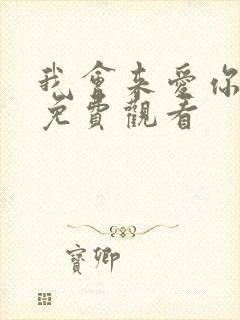 我會来愛你
免費觀看
寶卿